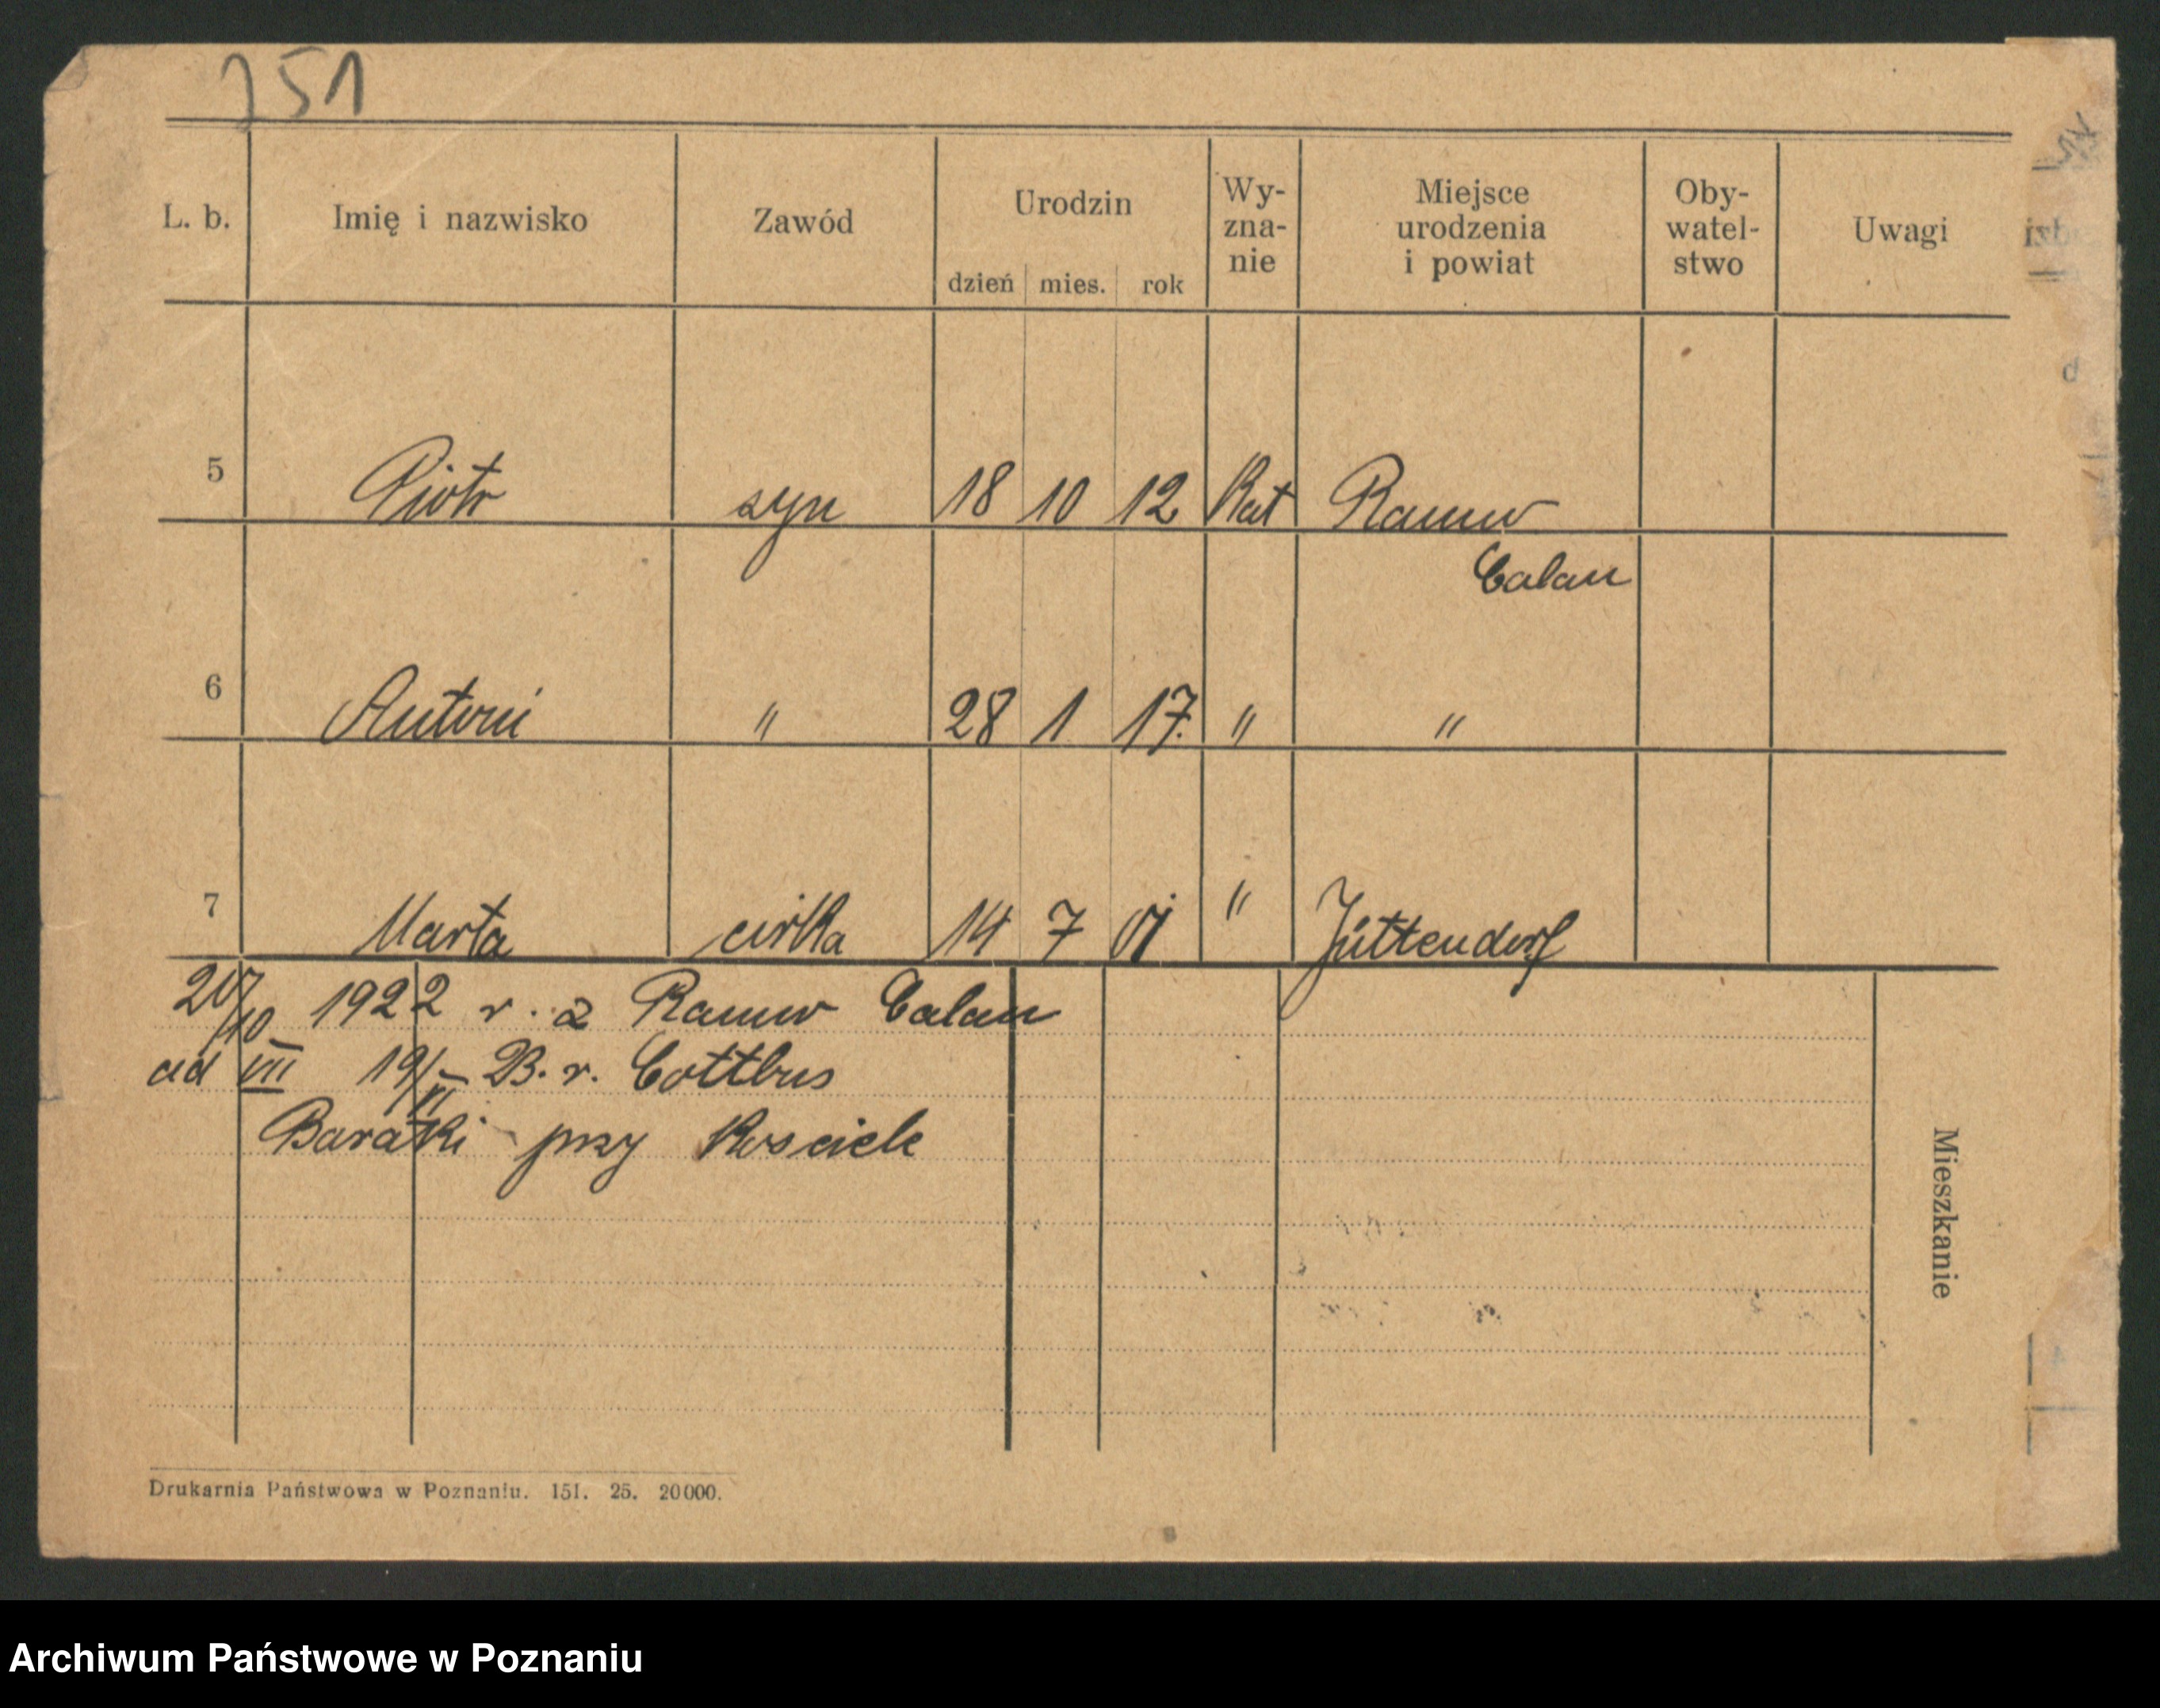 751
L. b. Imię i nazwisko Zawód Urodzin dzień mies. rok Wy-zna-nie Miejsce urodzenia i powiat Oby-watel-stwo Uwagi
5 Piotr syn 18 10 12 Kat Raunw
Calau
6 Antoni " 28 1 17. " "
7 Marta cirka 14 7 01 " Jüttendorf
20/10 1922 r. z Raunw Calau
ad VII 19/VI 23. r. Cottbus
Baraki przy Kosciele
Mieszkanie
Drukarnia Państwowa w Poznaniu. 151. 25. 20000.
Archiwum Państwowe w Poznaniu